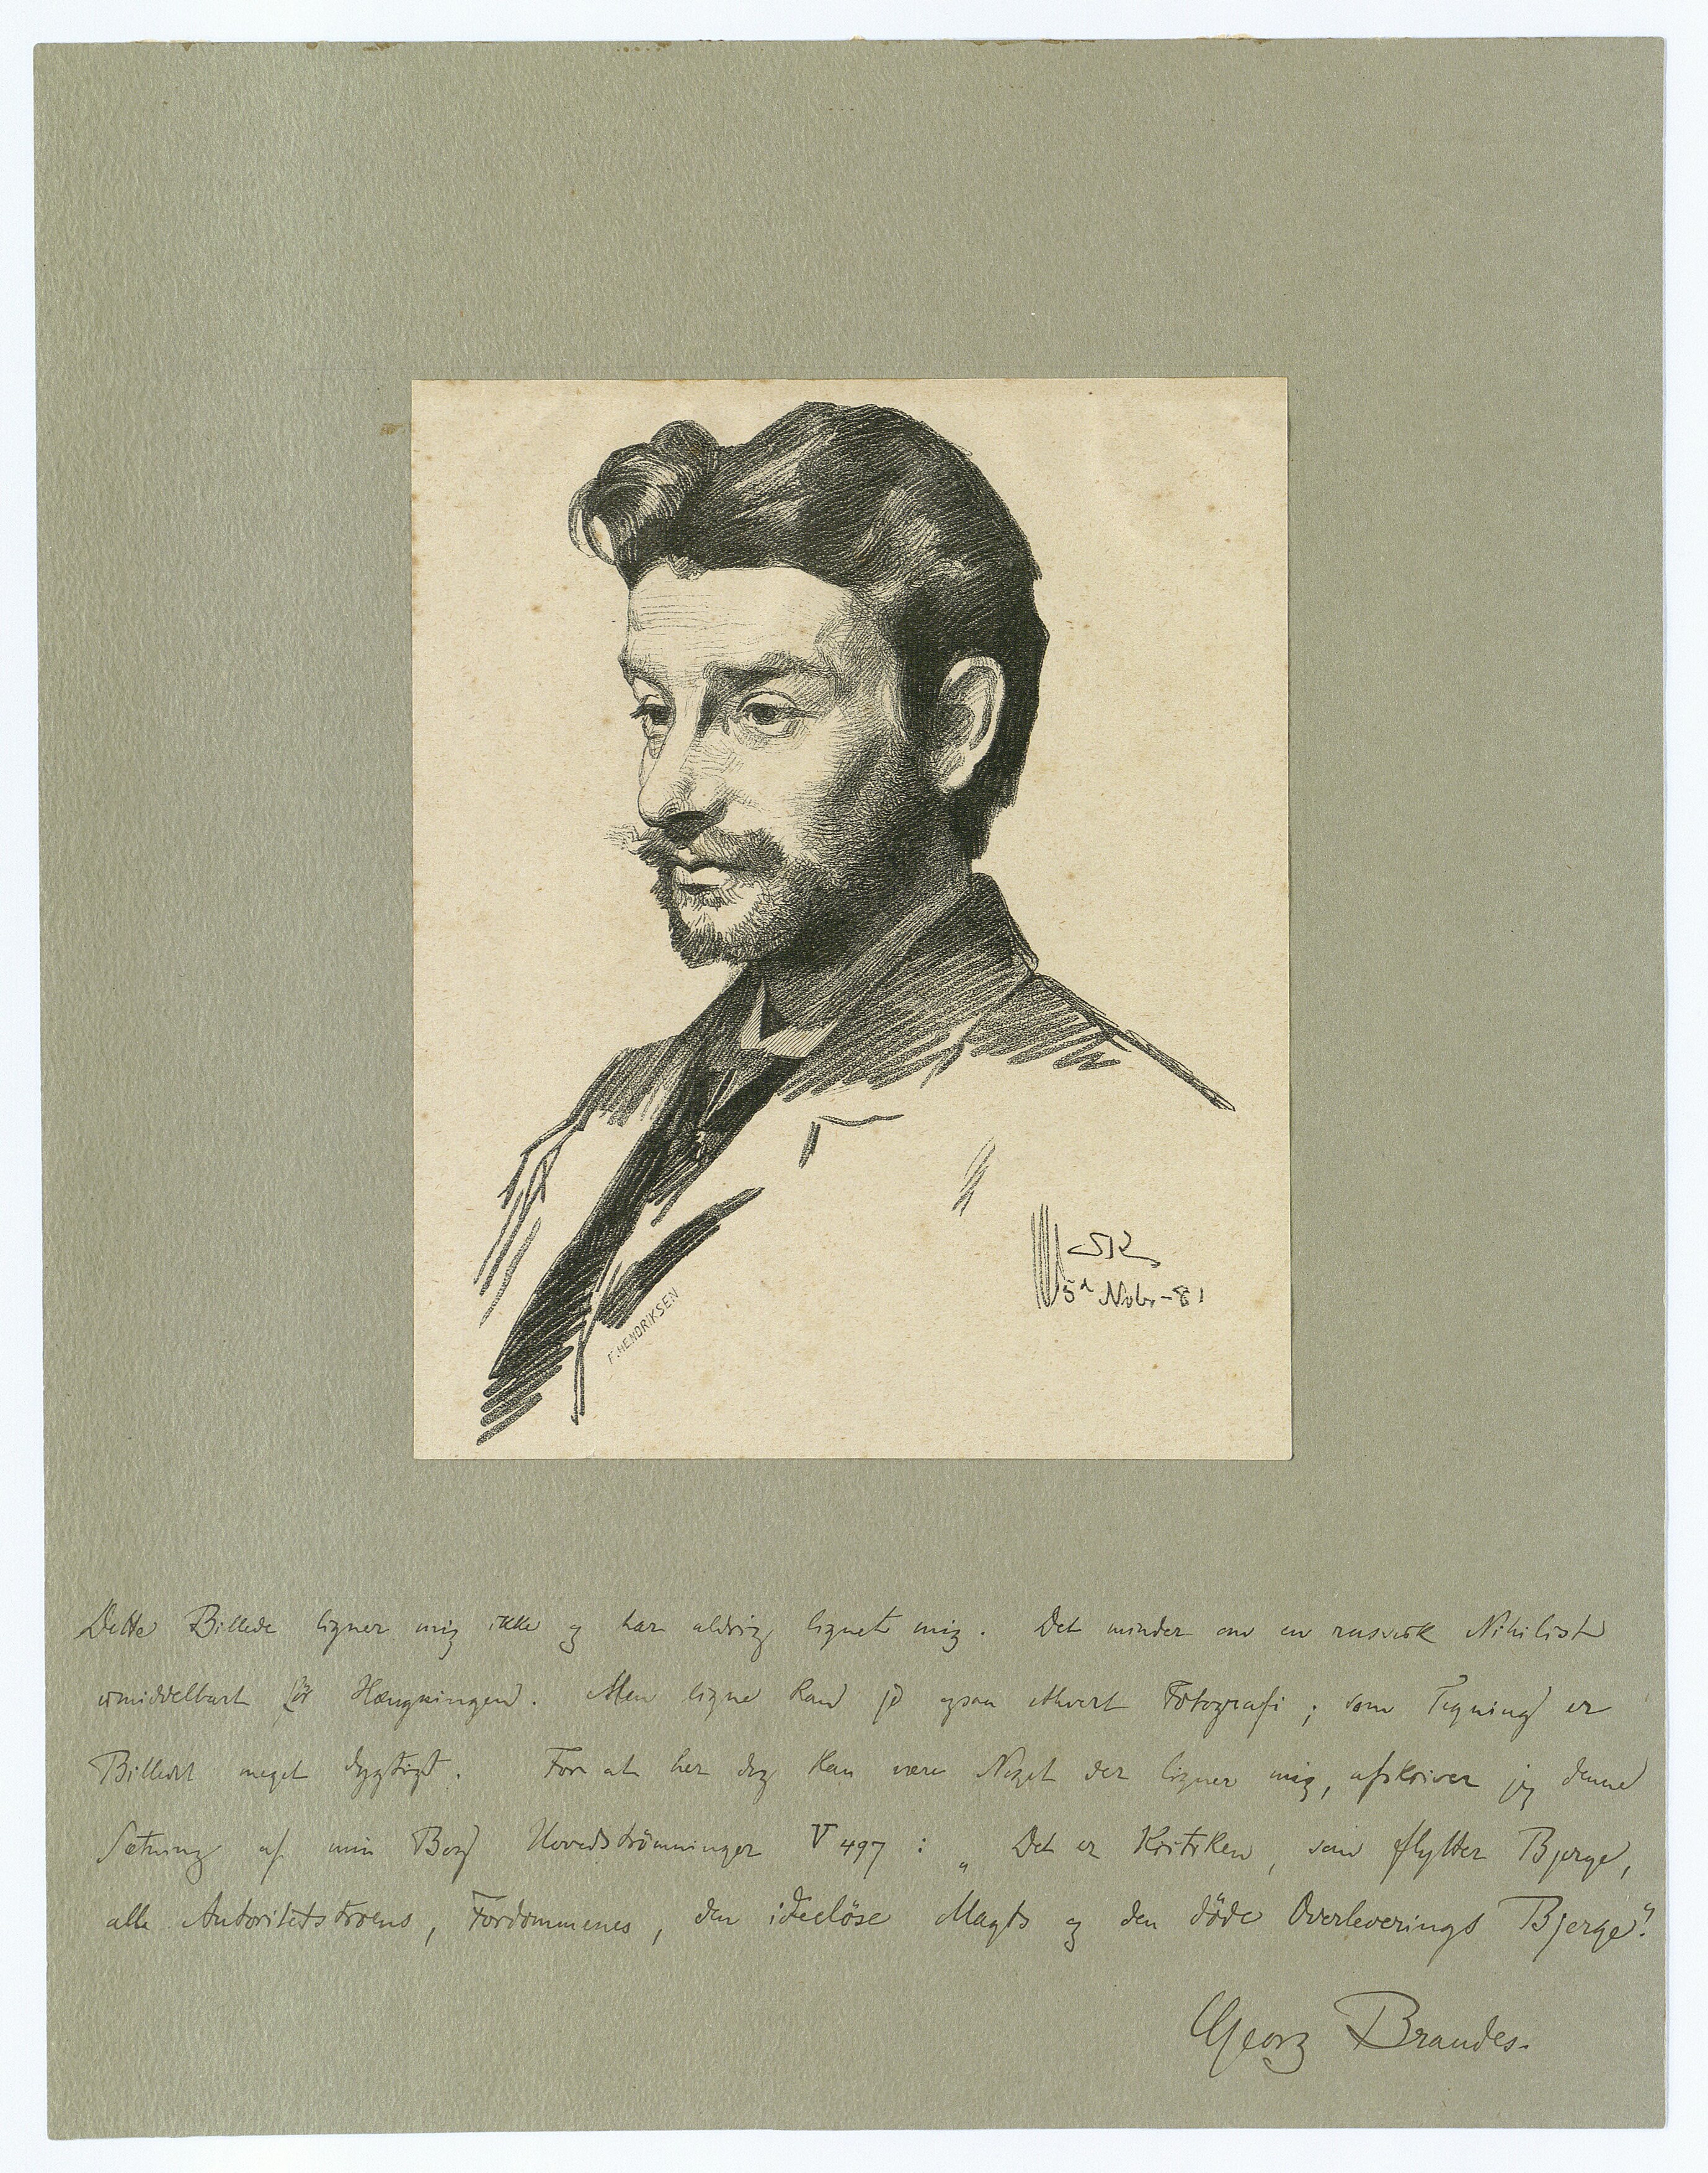 SK
5d Nvbr-81
F. HENDRIKSEN
Dette Billede ligner mig ikke og har aldrig lignet mig. Det minder om en russisk Nihilist
umiddelbart för Hængningen. Men ligne kan jo ogsaa ethvert Fotografi; som Tegning er
Billedet meget dygtigt. For at her dog kan være Noget der ligner mig, afskriver jeg denne
Sætning af min Bog Hovedströmninger V 497: „Det er Kritiken, som flytter Bjerge,
alle Autoritetstroens, Fordommenes, den ideelöse Magts og den döde Overleverings Bjerge."
Georg Brandes.